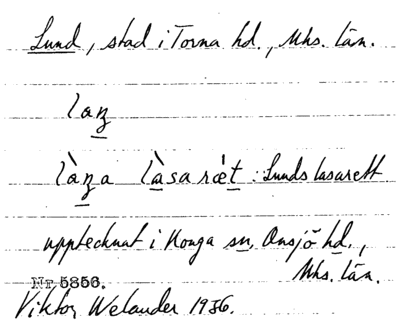 Lund, stad i Torna hd., Mhs. län.
laȵ
làȵa làsaræ̀t : Lunds lasarett
upptecknat i Konga sn, Onsjö hd.,
Mhs. län.
Nr 5856.
Viktor Welander 1936.